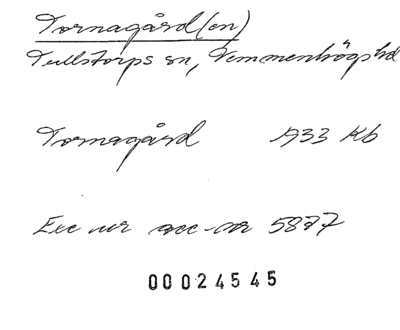 Tornagård(en)
Tullstorps sn, Vemmenhögs hd
Tornagård 1933 Kb
Exc ur acc-nr 5877
00024545